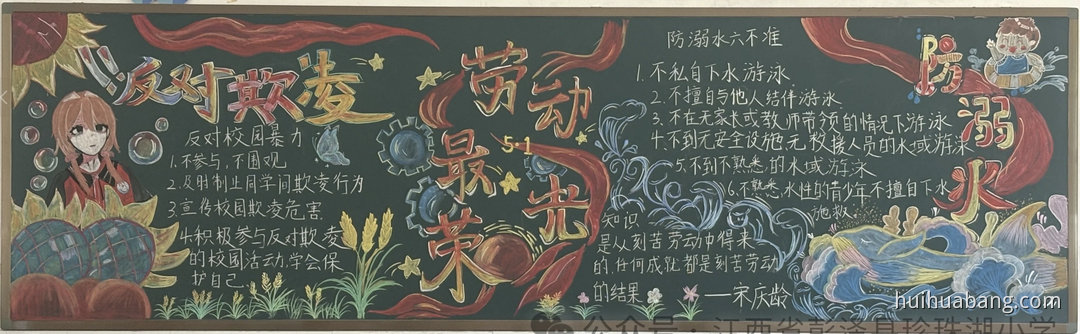 反对欺凌
反对校园暴力
1.不参与,不围观
2.及时制止同学间欺凌行为
3.宣传校园欺凌危害
4.积极参与反对欺凌
的校园活动学会保
护自己
劳动
最光
荣
5·1
防溺水六不准
1.不私自下水游泳
2.不擅自与他人结伴游泳
3.不在无家长或教师带领的情况下游泳
4.不到无安全设施,无救援人员的水域游泳
5.不到不熟悉的水域游泳
6.不熟悉水性的青少年不擅自下水
施救
防
溺
水
知识
是从刻苦劳动中得来
的,任何成就都是刻苦劳动
的结果
——宋庆龄
huihuabang.com
公众号·江西省彭泽县珍珠湖小学